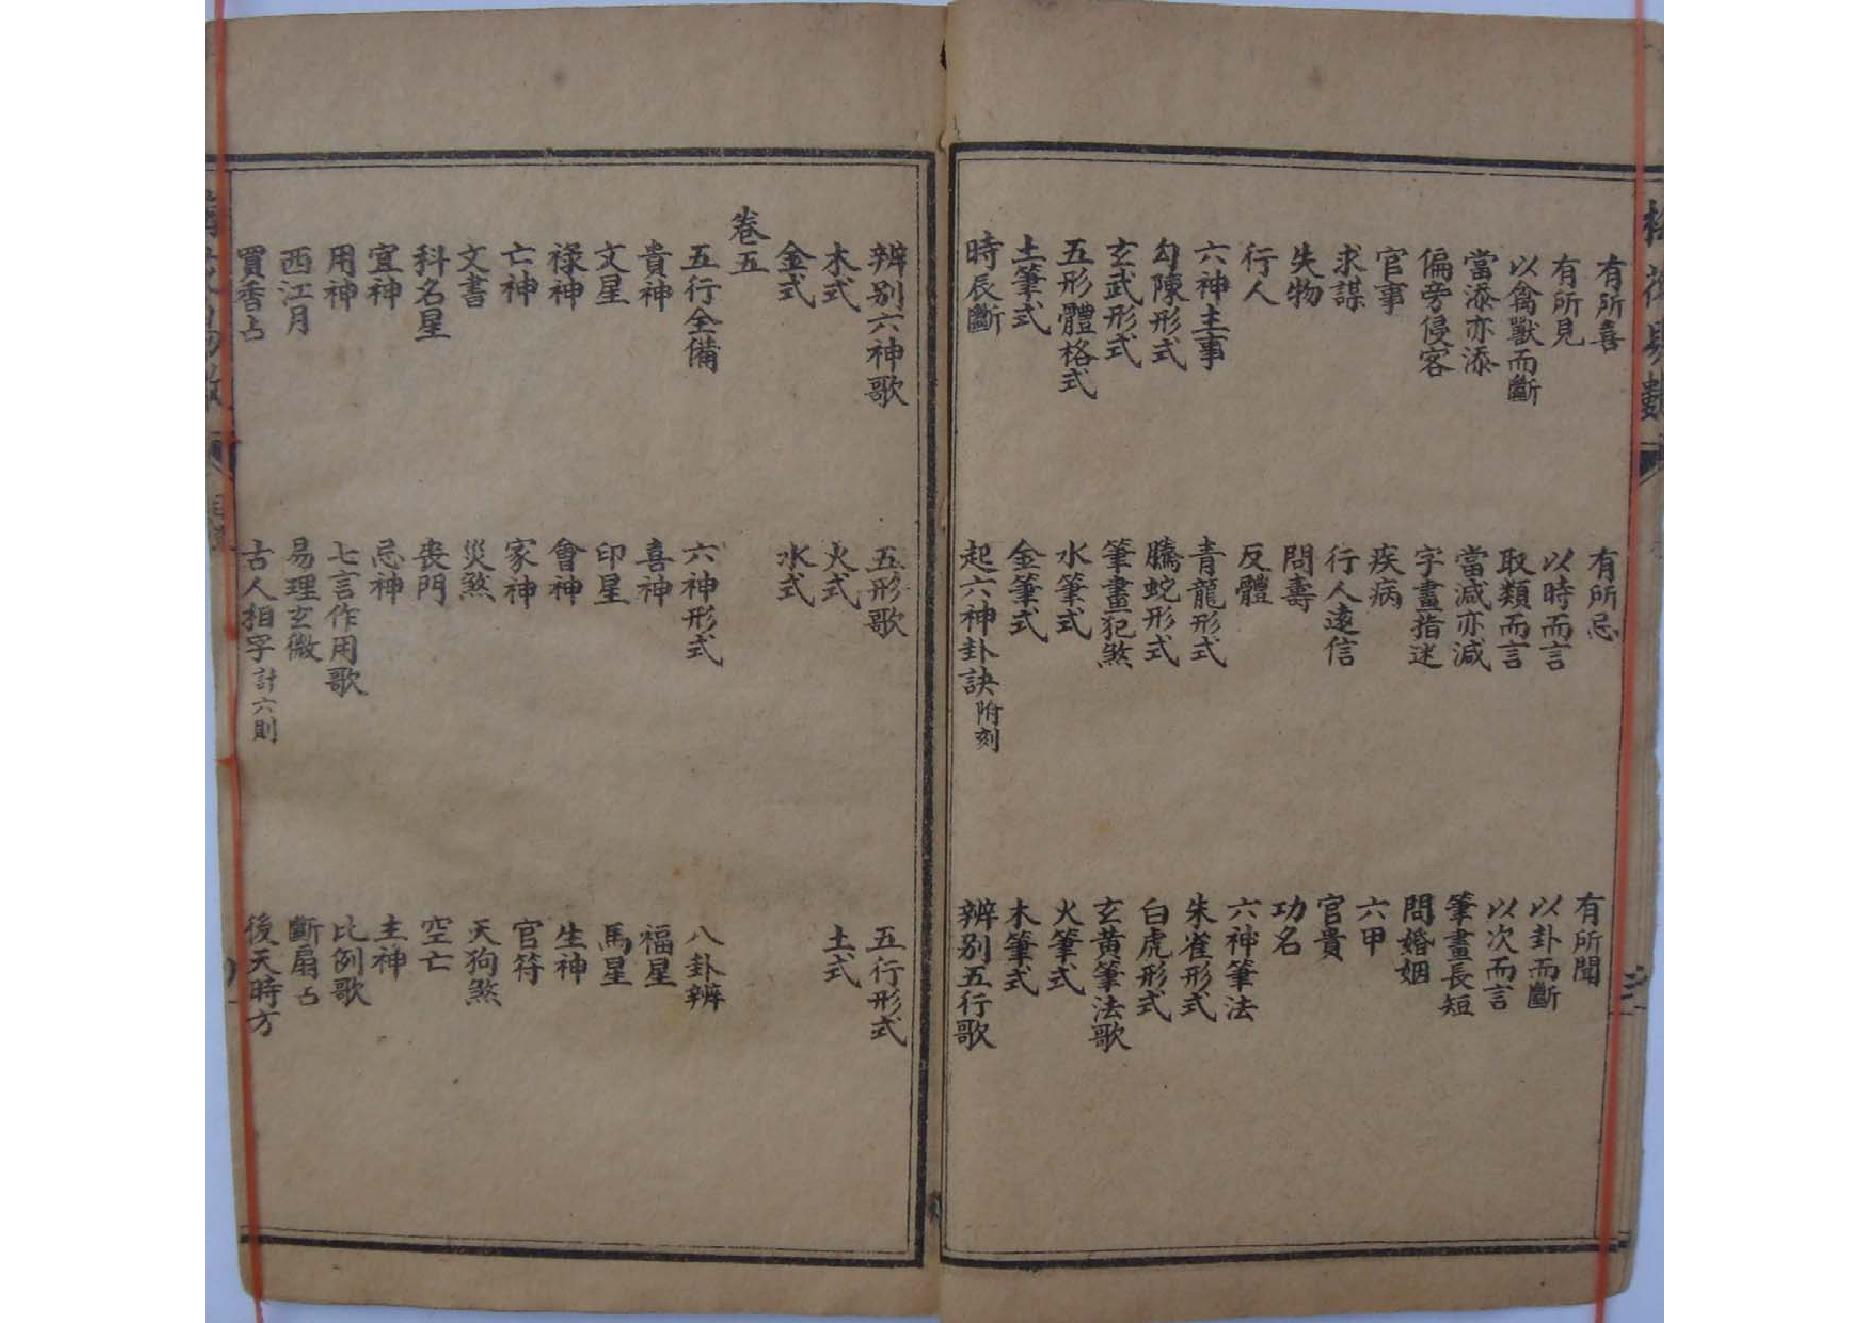 梅花易數
有所喜 有所忌 有所聞
有所見 以時而言 以卦而斷
以禽獸而斷 取類而言 以次而言
當添亦添 當減亦減 筆畫長短
偏旁侵客 字畫指迷 問婚姻
官事 疾病 六甲
求謀 行人遠信 官貴
失物 問壽 功名
行人 反體 六神筆法
六神主事 青龍形式 朱雀形式
勾陳形式 騰蛇形式 白虎形式
玄武形式 筆畫犯煞 玄黃筆法歌
五形體格式 水筆式 火筆式
土筆式 金筆式 木筆式
時辰斷 起六神卦訣附刻 辨別五行歌
辨別六神歌 五形歌 五行形式
木式 火式 土式
金式 水式
卷五
五行全備 六神形式 八卦辨
貴神 喜神 福星
文星 印星 馬星
祿神 會神 生神
亡神 家神 官符
文書 災煞 天狗煞
科名星 喪門 空亡
宜神 忌神 主神
用神 七言作用歌 比例歌
西江月 易理玄微 斷扇占
買香占 古人相字計六則 後天時方